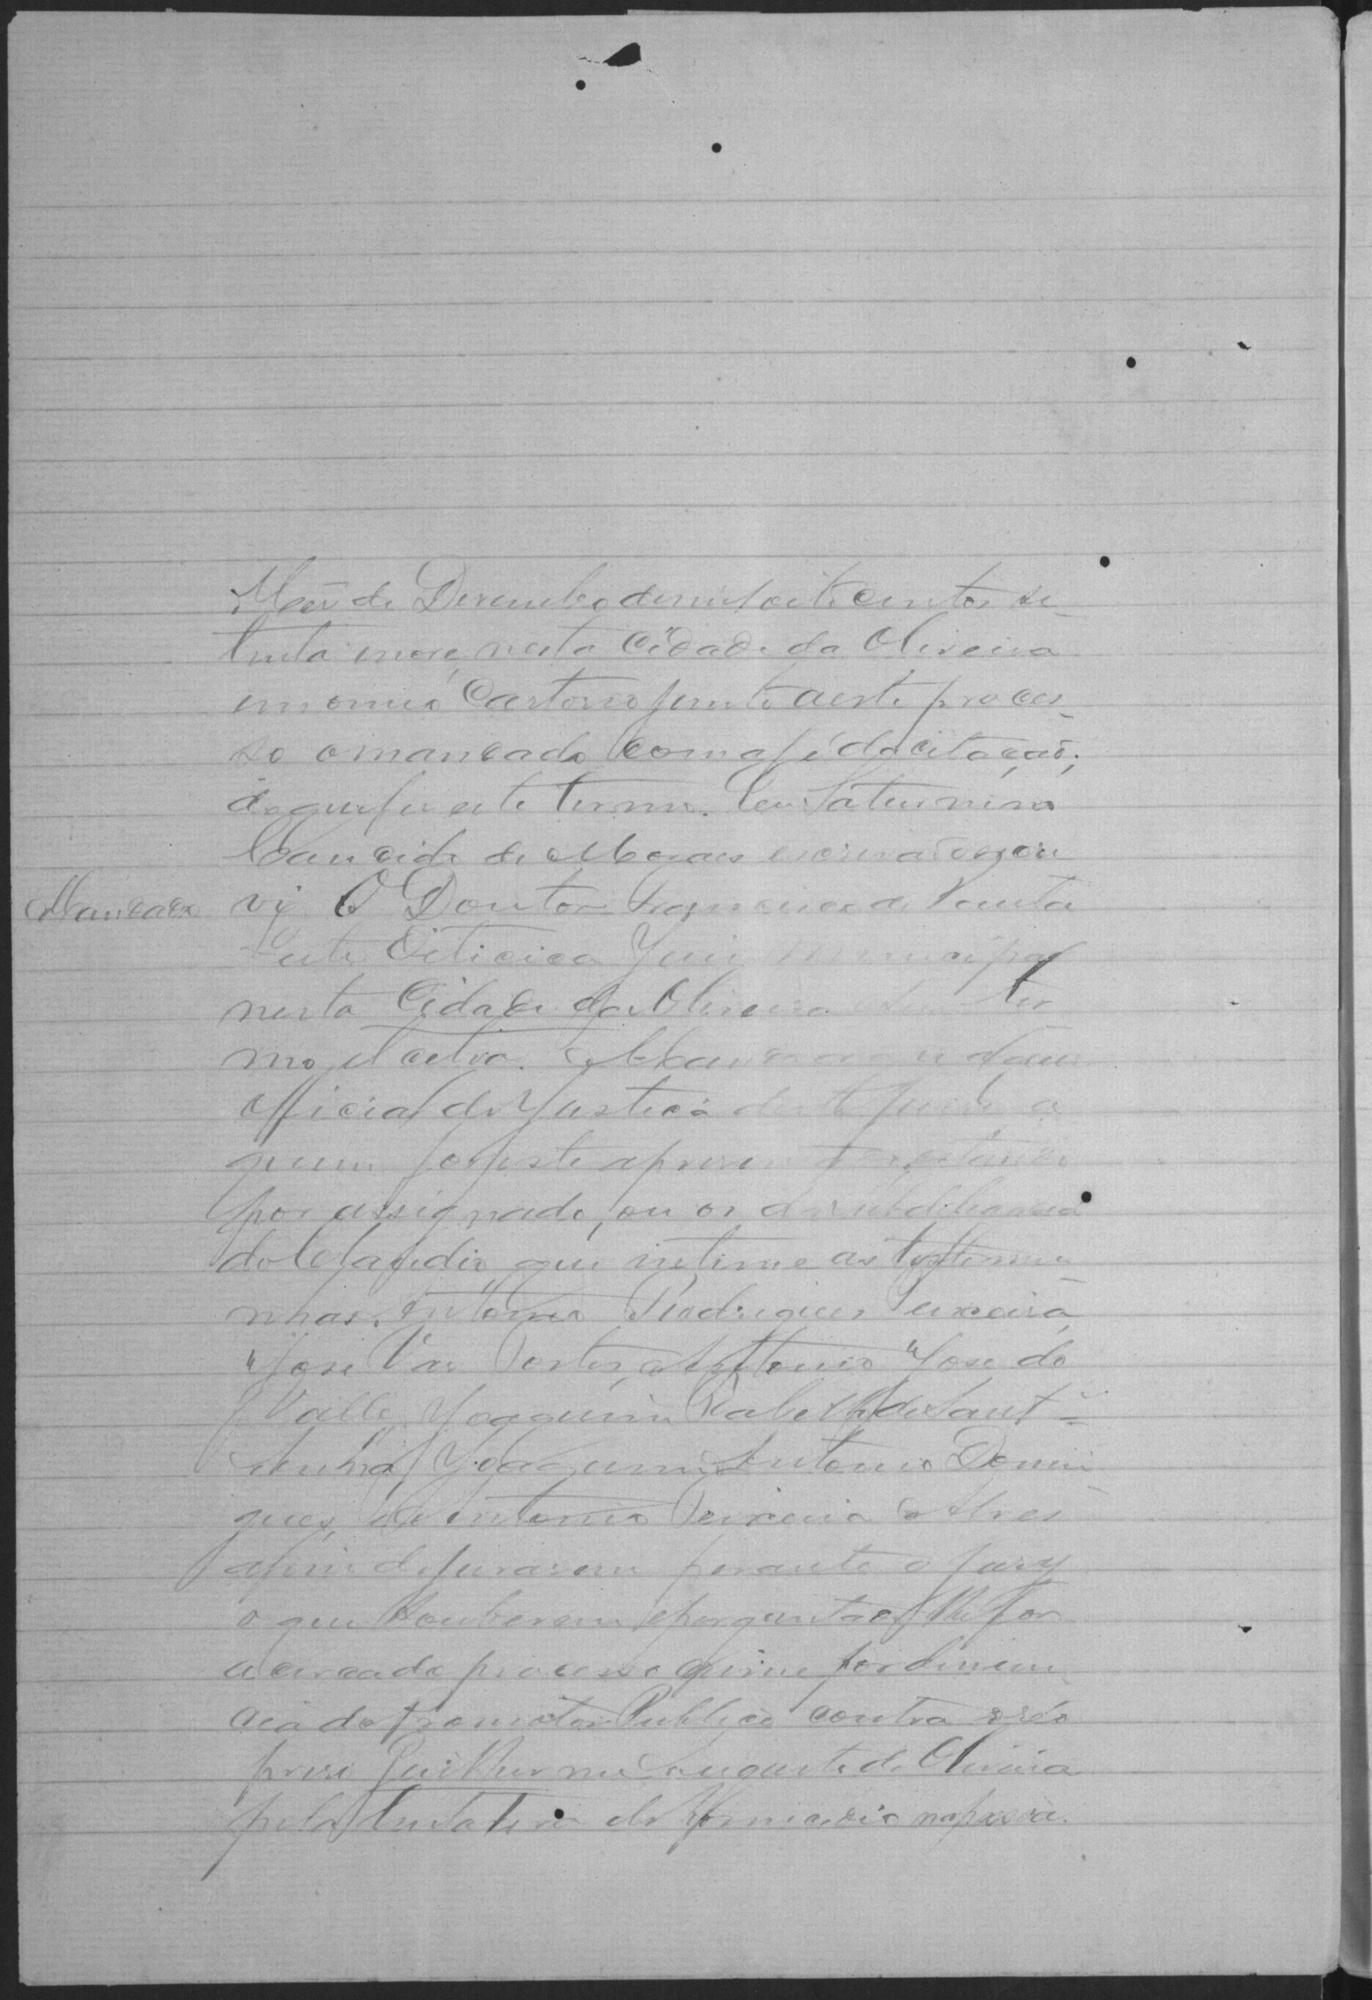 Mes de Desembro de mil oito centos se-
tenta e nove, nesta Cidade da Oliveira
em o meu Cartorio junto a este proces-
so o mandado com a fé da citação;
do que fis este termo. Eu Saturnino
Candido de Moraes escrivão o escre
Mandado
vi O Doutor Francisco de Paula
Leite Oiticica Juis Municipal
nesta Cidade da Oliveira seu ter
mo et cetra. Mando a
official de Justiça deste Juiso a
quem for este apresentado
por assignado, ou o da subdelegacia
do Claudio, que intime as testemu
nhas. Antonio Rodrigues Teixeira,
José Vas Porto, Antonio José do
Valle, Joaquim Rabello de Sant-
Joaquim Antonio Domin
gues, Antonio Teixeira Alves
afim de jurarem perante o jury
o que souberem e perguntado lhe for
acerca do processo crime por denun
cia do Promotor Publico contra o réo
preso Guilherme Augusto de Oliveira
pela tentativa de homicidio na pessoa